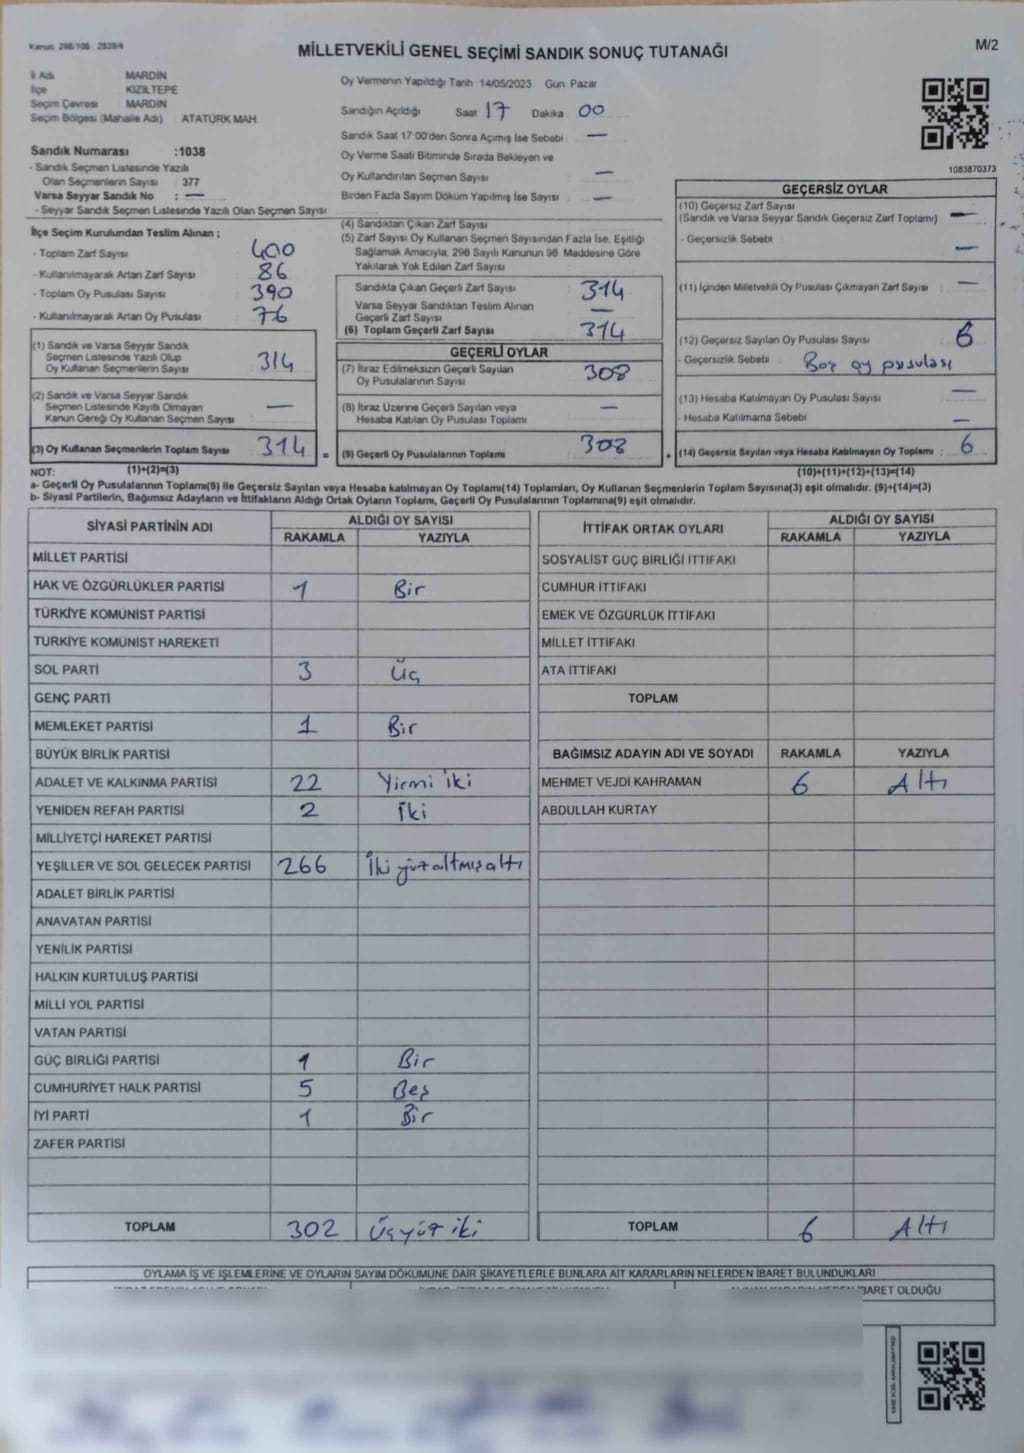 Kanun: 298/105 , 2839/4
MİLLETVEKİLİ GENEL SEÇİMİ SANDIK SONUÇ TUTANAĞI
M/2
İl Adı MARDİN
İlçe KIZILTEPE
Seçim Çevresi MARDİN
Seçim Bölgesi (Mahalle Adı) ATATÜRK MAH.
Sandık Numarası :1038
- Sandık Seçmen Listesinde Yazılı
Olan Seçmenlerin Sayısı : 377
Varsa Seyyar Sandık No : —
- Seyyar Sandık Seçmen Listesinde Yazılı Olan Seçmen Sayısı:
İlçe Seçim Kurulundan Teslim Alınan ;
- Toplam Zarf Sayısı 400
- Kullanılmayarak Artan Zarf Sayısı 86
- Toplam Oy Pusulası Sayısı 390
- Kullanılmayarak Artan Oy Pusulası 76
(1) Sandık ve Varsa Seyyar Sandık
Seçmen Listesinde Yazılı Olup
Oy Kullanan Seçmenlerin Sayısı 314
(2) Sandık ve Varsa Seyyar Sandık
Seçmen Listesinde Kayıtlı Olmayan
Kanun Gereği Oy Kullanan Seçmen Sayısı —
(3) Oy Kullanan Seçmenlerin Toplam Sayısı 314 =
Oy Vermenin Yapıldığı Tarih 14/05/2023 Gün: Pazar
Sandığın Açıldığı Saat: 17 Dakika 00
Sandık Saat 17:00'den Sonra Açımış İse Sebebi : —
Oy Verme Saati Bitiminde Sırada Bekleyen ve
Oy Kullandırılan Seçmen Sayısı —
Birden Fazla Sayım Döküm Yapılmış İse Sayısı —
(4) Sandıktan Çıkan Zarf Sayısı
(5) Zarf Sayısı Oy Kullanan Seçmen Sayısından Fazla İse, Eşitliği
Sağlamak Amacıyla, 298 Sayılı Kanunun 98. Maddesine Göre
Yakılarak Yok Edilen Zarf Sayısı
Sandıkla Çıkan Geçerli Zarf Sayısı 314
Varsa Seyyar Sandıktan Teslim Alınan
Geçerli Zarf Sayısı —
(6) Toplam Geçerli Zarf Sayısı 314
GEÇERLİ OYLAR
(7) İtiraz Edilmeksizin Geçerli Sayılan
Oy Pusulalarının Sayısı 308
(8) İtiraz Üzerine Geçerli Sayılan veya
Hesaba Katılan Oy Pusulası Toplamı —
(9) Geçerli Oy Pusulalarının Toplamı 308 +
1083870373
GEÇERSİZ OYLAR
(10) Geçersiz Zarf Sayısı
(Sandık ve Varsa Seyyar Sandık Geçersiz Zarf Toplamı) —
- Geçersizlik Sebebi —
(11) İçinden Milletvekili Oy Pusulası Çıkmayan Zarf Sayısı —
(12) Geçersiz Sayılan Oy Pusulası Sayısı 6
- Geçersizlik Sebebi Boş oy pusulası
(13) Hesaba Katılmayan Oy Pusulası Sayısı —
- Hesaba Katılmama Sebebi —
(14) Geçersiz Sayılan veya Hesaba Katılmayan Oy Toplamı 6
NOT: (1)+(2)=(3) (10)+(11)+(12)+(13)=(14)
a- Geçerli Oy Pusulalarının Toplamı(9) ile Geçersiz Sayılan veya Hesaba katılmayan Oy Toplamı(14) Toplamları, Oy Kullanan Seçmenlerin Toplam Sayısına(3) eşit olmalıdır. (9)+(14)=(3)
b- Siyasi Partilerin, Bağımsız Adayların ve İttifakların Aldığı Ortak Oyların Toplamı, Geçerli Oy Pusulalarının Toplamına(9) eşit olmalıdır.
SİYASİ PARTİNİN ADI ALDIĞI OY SAYISI
RAKAMLA YAZIYLA
MİLLET PARTİSİ
HAK VE ÖZGÜRLÜKLER PARTİSİ 1 Bir
TÜRKİYE KOMÜNİST PARTİSİ
TÜRKİYE KOMÜNİST HAREKETİ
SOL PARTİ 3 Üç
GENÇ PARTİ
MEMLEKET PARTİSİ 1 Bir
BÜYÜK BİRLİK PARTİSİ
ADALET VE KALKINMA PARTİSİ 22 Yirmi iki
YENİDEN REFAH PARTİSİ 2 İki
MİLLİYETÇİ HAREKET PARTİSİ
YEŞİLLER VE SOL GELECEK PARTİSİ 266 İki yüz altmış altı
ADALET BİRLİK PARTİSİ
ANAVATAN PARTİSİ
YENİLİK PARTİSİ
HALKIN KURTULUŞ PARTİSİ
MİLLİ YOL PARTİSİ
VATAN PARTİSİ
GÜÇ BİRLİĞİ PARTİSİ 1 Bir
CUMHURİYET HALK PARTİSİ 5 Beş
İYİ PARTİ 1 Bir
ZAFER PARTİSİ
TOPLAM 302 Üç yüz iki
İTTİFAK ORTAK OYLARI ALDIĞI OY SAYISI
RAKAMLA YAZIYLA
SOSYALİST GÜÇ BİRLİĞİ İTTİFAKI
CUMHUR İTTİFAKI
EMEK VE ÖZGÜRLÜK İTTİFAKI
MİLLET İTTİFAKI
ATA İTTİFAKI
TOPLAM
BAĞIMSIZ ADAYIN ADI VE SOYADI RAKAMLA YAZIYLA
MEHMET VEJDİ KAHRAMAN 6 Altı
ABDULLAH KURTAY
TOPLAM 6 Altı
OYLAMA İŞ VE İŞLEMLERİNE VE OYLARIN SAYIM DÖKÜMÜNE DAİR ŞİKAYETLERLE BUNLARA AİT KARARLARIN NELERDEN İBARET BULUNDUKLARI
BARET OLDUĞU